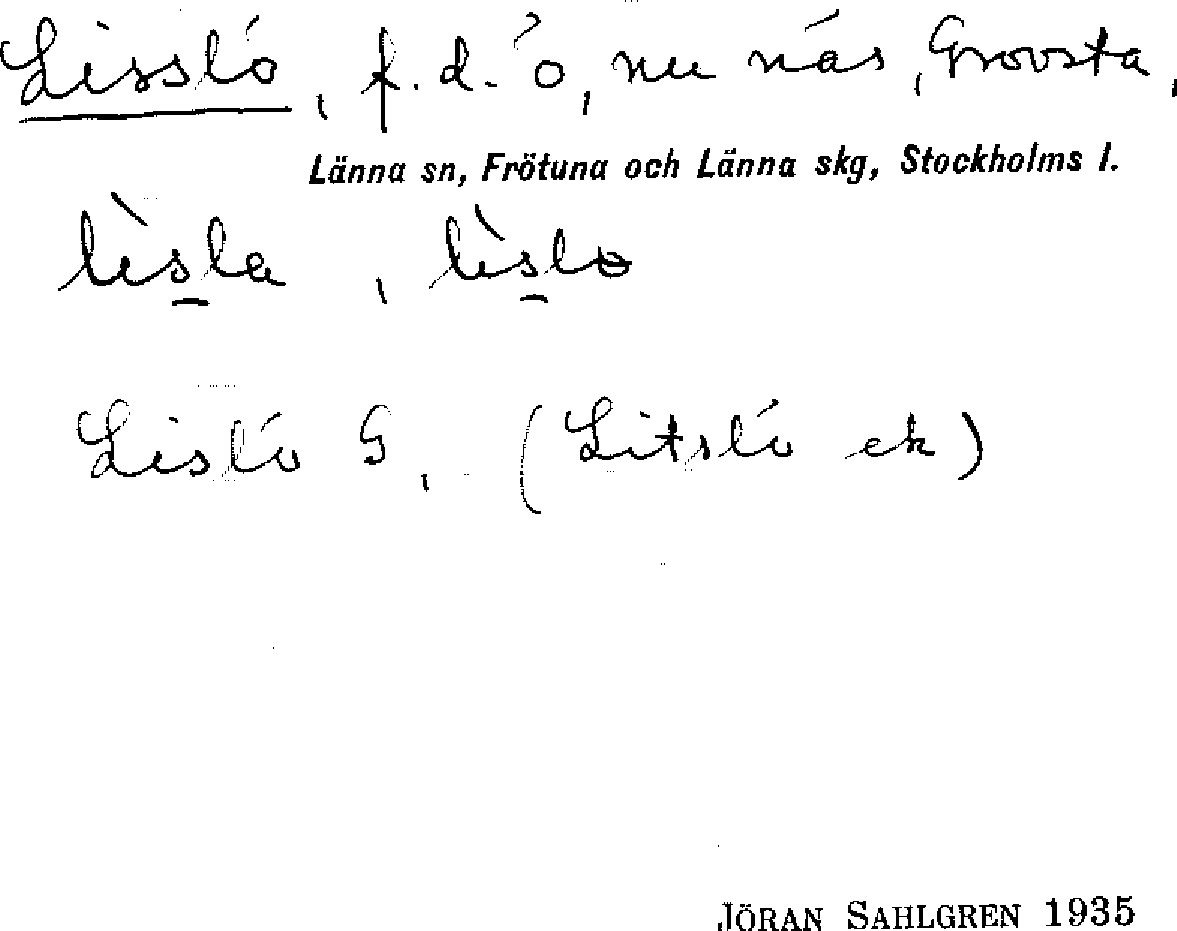 Lissló, f. d. ó, nu nás, Grovsta,
Länna sn, Frötuna och Länna skg, Stockholms l.
lìsla, lìslo
Lisló G, (Litsló ek)
JÖRAN SAHLGREN 1935